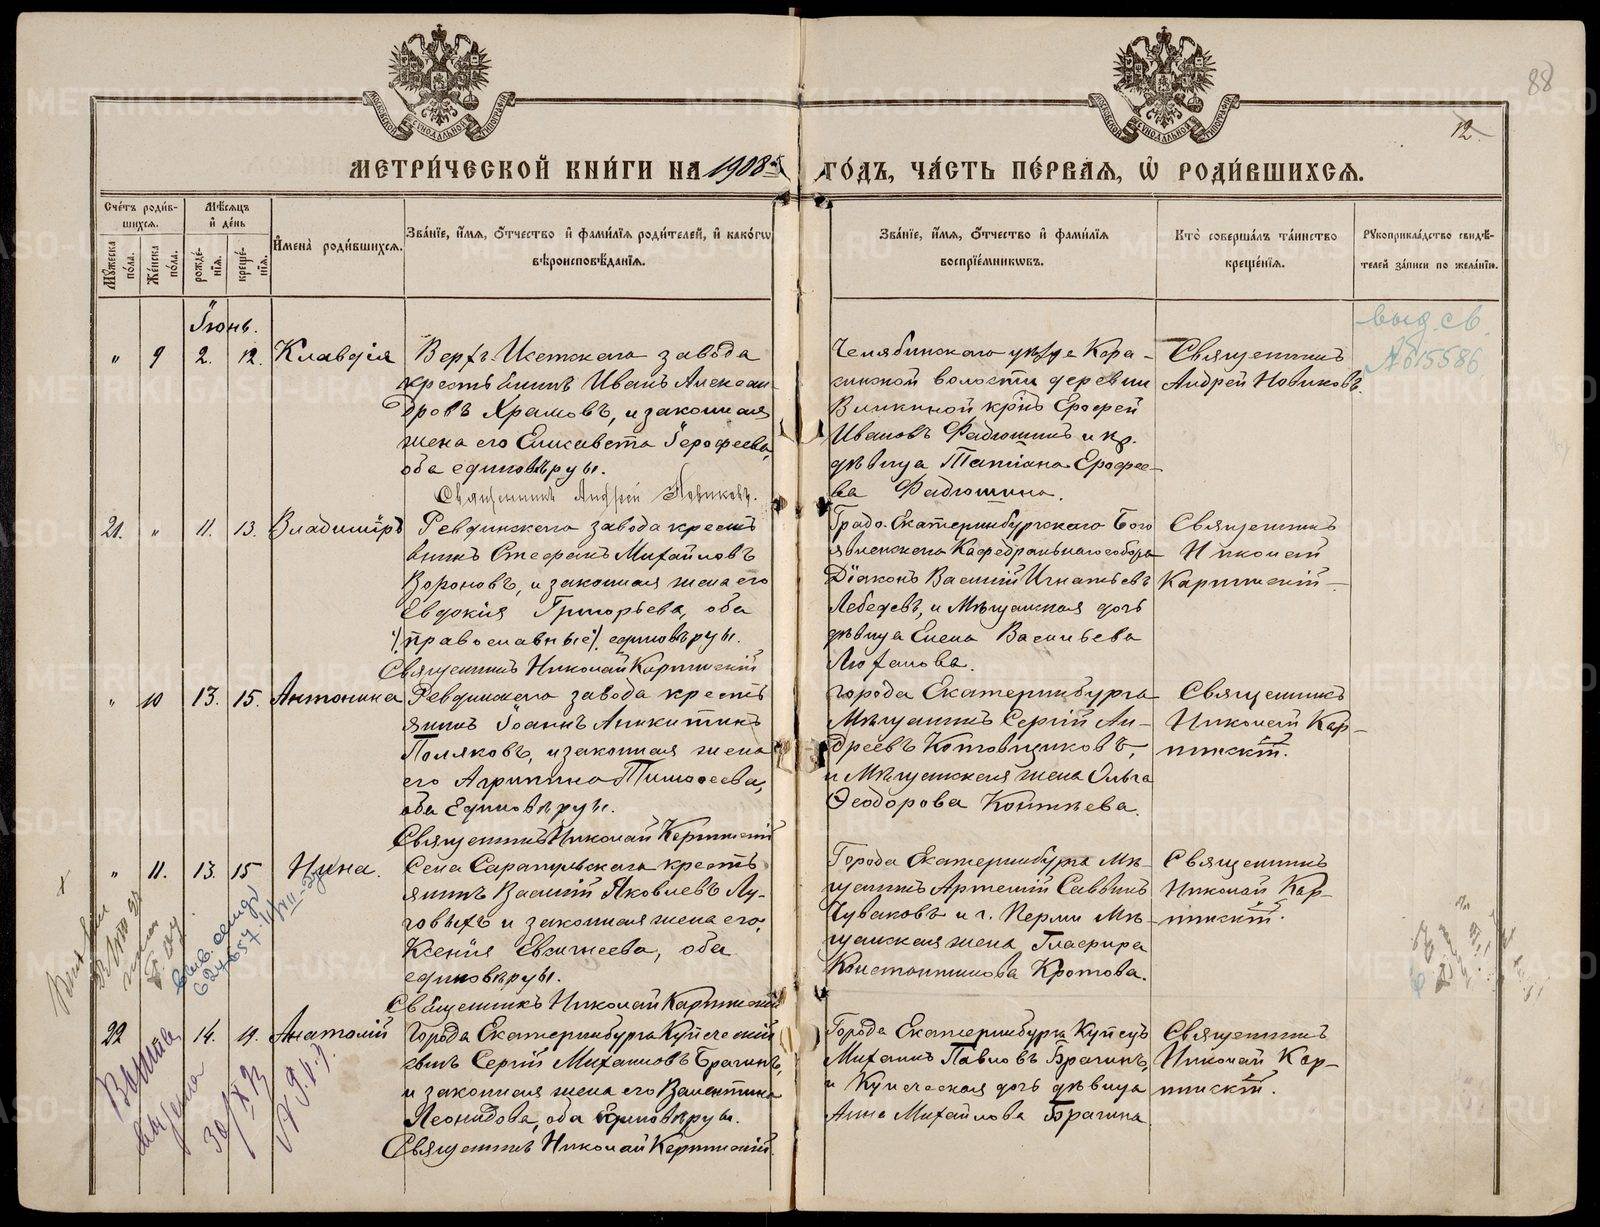 88
12
МЕТРИ́ЧЕСКОЙ КНИ́ГИ НА 1908й ГО́ДЪ, ЧА́СТЬ ПЕ́РВАѦ, Ѽ РОДИ́ВШИХСѦ.
Сче́тъ роди́вшихсѧ.
Мꙋ́жеска по́ла.
Же́нска по́ла.
Мѣ́сѧцъ и҆ де́нь
рожде́нїѧ.
креще́нїѧ.
И҆мена̀ роди́вшихсѧ.
Зва́нїе, и҆́мѧ, ѻ҆́тчество и҆ фами́лїѧ роди́телей, и҆ како́гѡ
вѣроисповѣ́данїѧ.
Зва́нїе, и҆́мѧ, ѻ҆́тчество и҆ фами́лїѧ
воспрїе́мникѡвъ.
Кто̀ соверша́лъ та́инство
креще́нїѧ.
Рꙋкоприкла́дство свидѣ́-
телей за́писи по жела́нїю.
Іюнь.
" 9 2. 12. Клавдія
Верхъ Исетскаго завода
крестьянинъ Иванъ Алексан-
дровъ Храмовъ, и законная
жена его Елисавета Іерофеева,
оба единовѣрцы.
Священникъ Андрей Новиковъ.
Челябинскаго уѣзда Кара-
синской волости деревни
крнъ Ерофей
Ивановъ Фадюшинъ и кр.
дѣвица Татіана Ерофее-
ва Фадюшина.
Священникъ
Андрей Новиковъ.
выд. св.
№15586.
21. " 11. 13. Владиміръ
Ревдинскаго завода кресть
янинъ Стефанъ Михайловъ
Вороновъ, и законная жена его
Евдокія Григорьева, оба
/православные/ единовѣрцы.
Священникъ Николай Карпинскій
Градо-Екатеринбургскаго Бого
явленскаго Кафедральнаго собора
Діаконъ Василій Игнатьевъ
Лебедевъ, и Мѣщанская дочь
дѣвица Елена Васильева
Люханова.
Священникъ
Николай
Карпинскій
" 10 13. 15. Антонина
Ревдинскаго завода кресть
янинъ Іоаннъ Аникитинъ
Поляковъ, и законная жена
его Агрипина Тимофеева,
оба Единовѣрцы.
Священникъ Николай Карпинскій
города Екатеринбурга
Мѣщанинъ Сергій Ан-
дреевъ Котовщиковъ,
и Мѣщанская жена Ольга
Ѳеодорова
Священникъ
Николай Кар-
пинскій.
" 11. 13. 15 Нина.
Села Сарапульскаго кресть
янинъ Василій Яковлевъ Лу-
говыхъ и законная жена его
Ксенія Евгинеева, оба
единовѣрцы.
Священникъ Николай Карпинскій
Города Екатеринбурга Мѣ-
щанинъ Артемій Саввинъ
Чуваковъ и г. Перми Мѣ-
щанская жена Глафира
Константинова Кротова.
Священникъ
Николай Кар-
пинскій.
22 14. 19. Анатолій
Города Екатеринбурга Купеческій
сынъ Сергій Михаиловъ Брагинъ,
и законная жена его Валентина
Леонидова, оба единовѣрцы.
Священникъ Николай Карпинскій.
Города Екатеринбурга Купецъ
Михаилъ Павловъ Брагинъ,
и Купеческая дочь дѣвица
Анна Михайлова Брагина
Священникъ
Николай Кар-
пинскій.
METRIKI.GASO-URAL.RU